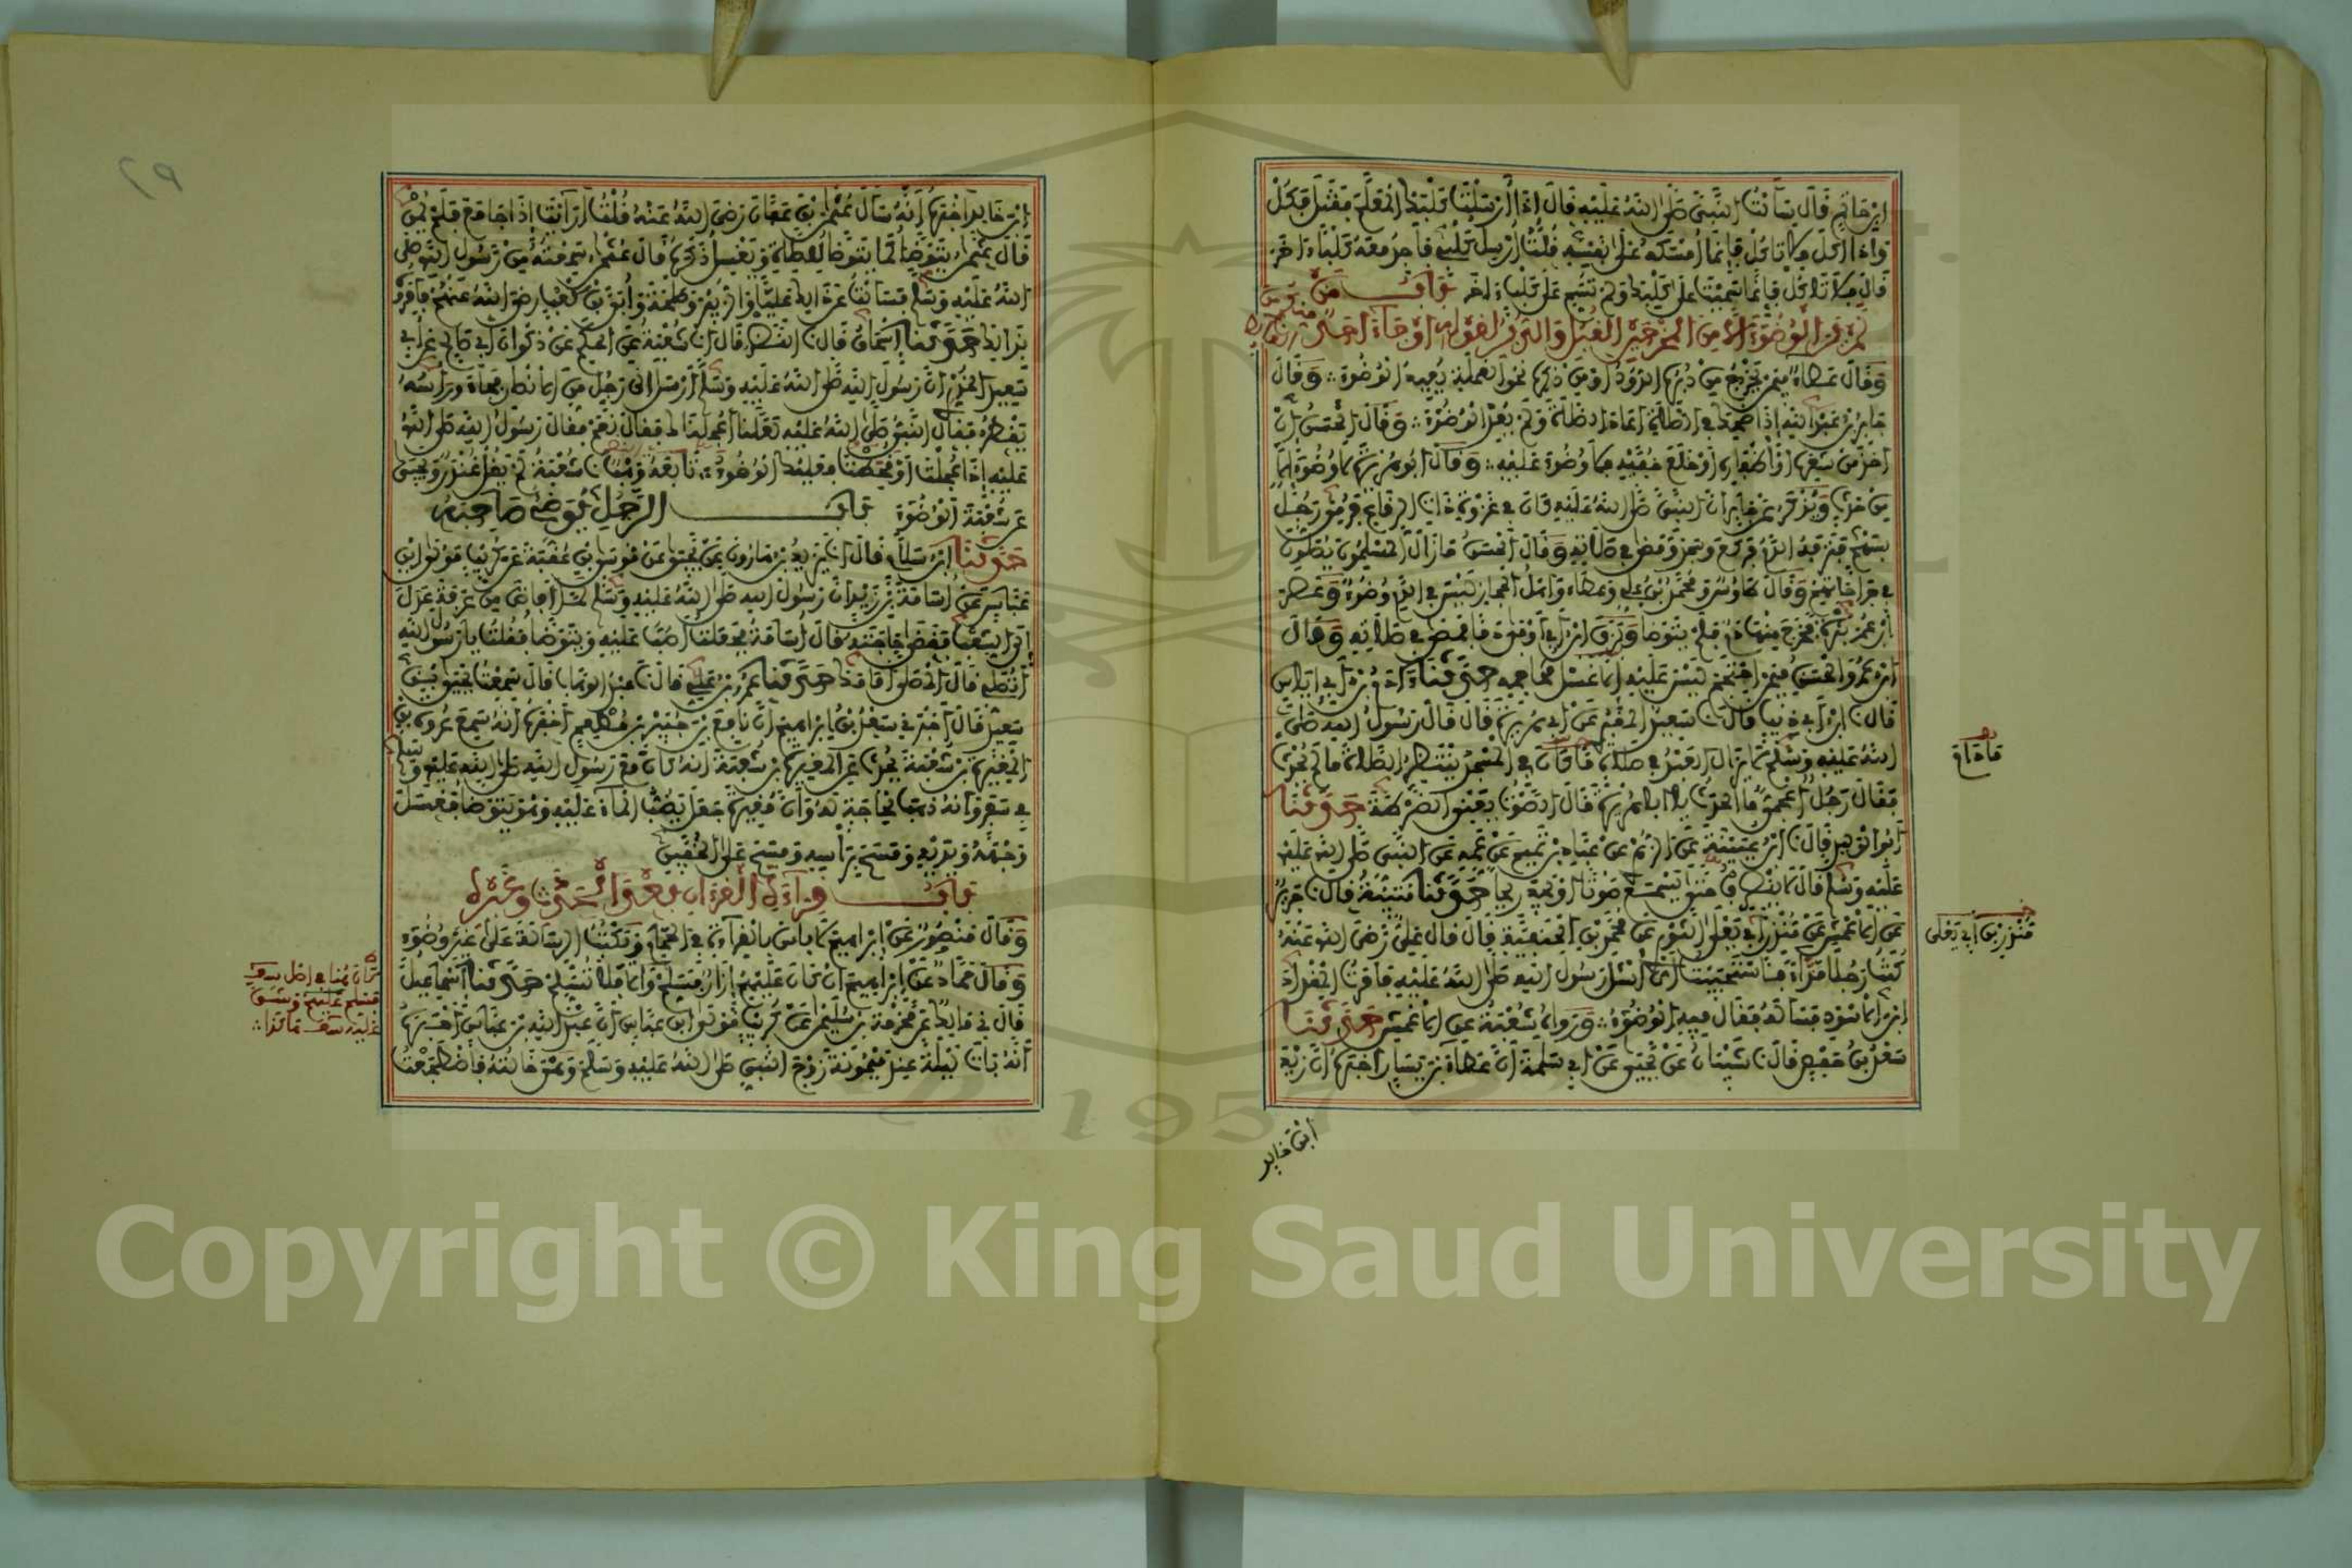 ابن حاتم قال سألت النبي صلى الله عليه فقال إذا أرسلت كلبك المعلم فقتل فكل
وإذا أكل فلا تأكل فإنما أمسكه على نفسه قلت أرسل كلبي فأجد معه كلبا آخر
قال فلا تأكل فإنما سميت على كلبك ولم تسم على كلب آخر باب من
لم ير الوضوء إلا من المخرجين القبل والدبر لقوله أو جاء أحد منكم من الغائط
وقال عطاء فيمن يخرج من دبره الدود أو من ذكره نحو القملة يعيد الوضوء وقال
جابر بن عبد الله إذا ضحك في الصلاة أعاد الصلاة ولم يعد الوضوء وقال الحسن إن
أخذ من شعره أو أظفاره أو خلع خفيه فلا وضوء عليه وقال أبو هريرة لا وضوء إلا
من حدث ويذكر عن جابر أن النبي صلى الله عليه كان في غزوة ذات الرقاع فرمي رجل
بسهم فنزفه الدم فركع وسجد ومضى في صلاته وقال الحسن ما زال المسلمون يصلون
في جراحاتهم وقال طاوس ومحمد بن علي وعطاء وأهل الحجاز ليس في الدم وضوء وعصر
ابن عمر بثرة فخرج منها دم فلم يتوضأ وبزق ابن أبي أوفى دما فمضى في صلاته وقال
ابن عمر والحسن فيمن احتجم ليس عليه إلا غسل محاجمه حدثنا آدم بن أبي إياس
قال ابن أبي ذئب قال سعيد المقبري عن أبي هريرة قال قال رسول الله صلى
الله عليه وسلم لا يزال العبد في صلاة ما كان في المسجد ينتظر الصلاة ما لم يحدث
فقال رجل أعجمي ما الحدث يا أبا هريرة قال الصوت يعني الضرطة حدثنا
أبو الوليد قال ابن عيينة عن الزهري عن عباد بن تميم عن عمه عن النبي صلى الله عليه
عليه وسلم قال لا ينصرف حتى يسمع صوتا أو يجد ريحا حدثنا قتيبة قال جرير
عن الأعمش عن منذر أبي يعلى الثوري عن محمد بن الحنفية قال قال علي رضي الله عنه
كنت رجلا مذاء فاستحييت أن أسأل رسول الله صلى الله عليه فأمرت المقداد
ابن الأسود فسأله فقال فيه الوضوء ورواه شعبة عن الأعمش حدثنا
سعد بن حفص قال شيبان عن يحيى عن أبي سلمة أن عطاء بن يسار أخبره أن زيد
ما دام
منذر بن أبي يعلى
ابن خالد
ابن خالد أخبره أنه سأل عثمان بن عفان رضي الله عنه قلت أرأيت إذا جامع فلم يمن
قال عثمان يتوضأ كما يتوضأ للصلاة ويغسل ذكره قال عثمان سمعته من رسول الله صلى
الله عليه وسلم فسألت عن ذلك عليا والزبير وطلحة وأبي بن كعب رضي الله عنهم فأمروه
بذلك حدثنا إسحاق قال النضر قال شعبة عن الحكم عن ذكوان أبي صالح عن أبي
سعيد الخدري أن رسول الله صلى الله عليه وسلم أرسل إلى رجل من الأنصار فجاء ورأسه
يقطر فقال النبي صلى الله عليه لعلنا أعجلناك فقال نعم فقال رسول الله صلى الله
عليه إذا أعجلت أو قحطت فعليك الوضوء تابعه وهب شعبة لم يقل غندر ويحيى
عن شعبة الوضوء باب الرجل يوضئ صاحبه
حدثنا ابن سلام قال يزيد بن هارون عن يحيى عن موسى بن عقبة عن كريب مولى ابن
عباس عن أسامة بن زيد أن رسول الله صلى الله عليه وسلم لما أفاض من عرفة عدل
إلى الشعب فقضى حاجته قال أسامة فجعلت أصب عليه ويتوضأ فقلت يا رسول الله
أتصلي قال المصلى أمامك حدثنا عمرو بن علي قال عبد الوهاب قال سمعت يحيى بن
سعيد قال أخبرني سعد بن إبراهيم أن نافع بن جبير بن مطعم أخبره أنه سمع عروة بن
المغيرة بن شعبة يحدث عن المغيرة بن شعبة أنه كان مع رسول الله صلى الله عليه وسلم
في سفر وأنه ذهب لحاجة له وأن مغيرة جعل يصب الماء عليه وهو يتوضأ فغسل
وجهه ويديه ومسح برأسه ومسح على الخفين
باب قراءة القرآن بعد الحدث وغيره
وقال منصور عن إبراهيم لا بأس بالقراءة في الحمام وبكتب الرسالة على غير وضوء
وقال حماد عن إبراهيم إن كان عليهم إزار فسلم وإلا فلا تسلم حدثنا إسماعيل
قال ني مالك عن مخرمة بن سليمان عن كريب مولى ابن عباس أن عبد الله بن عباس أخبره
أنه بات ليلة عند ميمونة زوج النبي صلى الله عليه وسلم وهي خالته فاضطجعت
٢٩
Copyright © King Saud University
1957